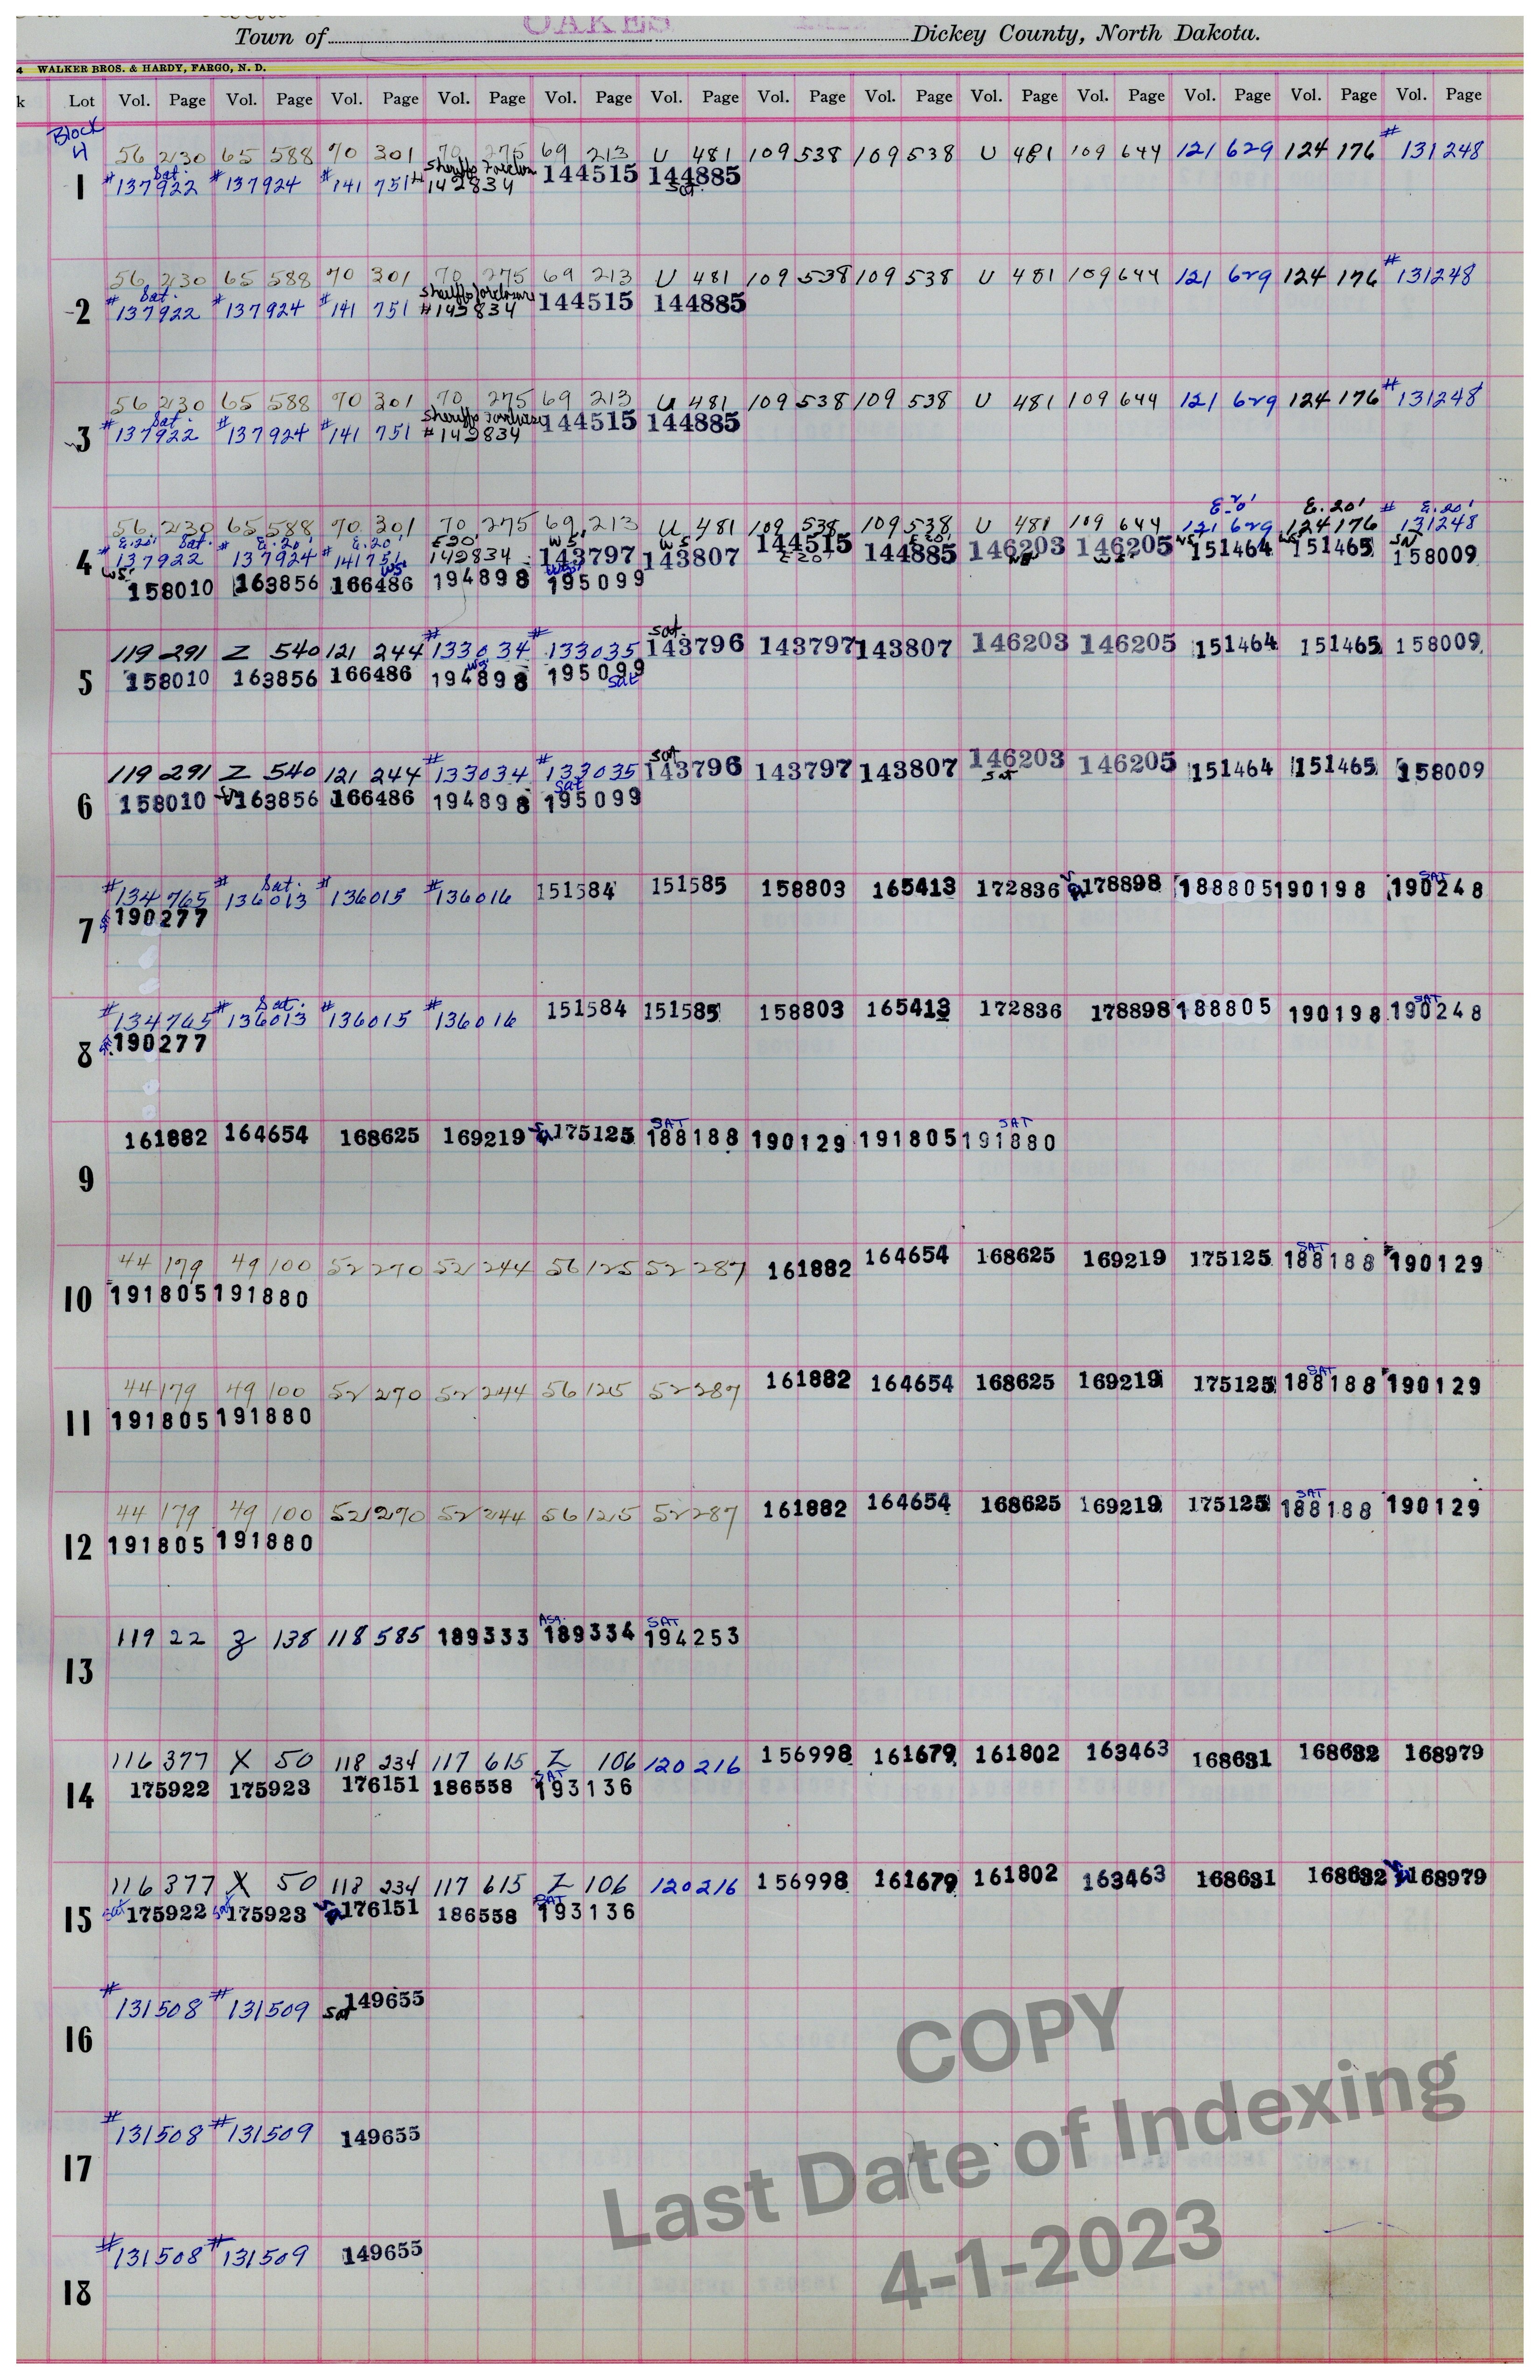 OAKES
Town of Dickey County, North Dakota.
4 WALKER BROS. & HARDY, FARGO, N. D.
k Lot Vol. Page Vol. Page Vol. Page Vol. Page Vol. Page Vol. Page Vol. Page Vol. Page Vol. Page Vol. Page Vol. Page Vol. Page Vol. Page
Block
4 56 230 65 588 70 301 70 275 69 213 U 481 109 538 109 538 U 481 109 644 121 629 124 176 #131248
Sat. Sheriffs
1 #137922 #137924 #141 751 142834 144515 144885
Sat.
56 230 65 588 70 301 70 275 69 213 U 481 109 538 109 538 U 481 109 644 121 629 124 176 #131248
Sat. Sheriffs foreclosure
2 #137922 #137924 #141 751 #142834 144515 144885
56 230 65 588 70 301 70 275 69 213 U 481 109 538 109 538 U 481 109 644 121 629 124 176 #131248
Sat. Sheriffs
3 #137922 #137924 #141 751 #142834 144515 144885
E-20' E. 20' # E. 20'
56 230 65 588 70 301 70 275 69 213 U 481 109 538 109 538 U 481 109 644 121 629 124 176 131248
E. 20' Sat. E. 20' E. 20' E 20' W 5' W 5' E 20'
4 #137922 #137924 #141751 142834 143797 143807 144515 144885 146203 146205 151464 151465 158009
W5' W5' E 20
158010 163856 166486 194898 195099
Sat.
119 291 Z 540 121 244 #133034 #133035 143796 143797 143807 146203 146205 151464 151465 158009
5 158010 163856 166486 194898 195099
Sat
Sat
119 291 Z 540 121 244 #133034 #133035 143796 143797 143807 146203 146205 151464 151465 158009
Sat Sat
6 158010 163856 166486 194898 195099
Sat. SAT
#134765 #136013 #136015 #136016 151584 151585 158803 165413 172836 178898 188805 190198 190248
7 190277
Sat. SAT
#134765 #136013 #136015 #136016 151584 151585 158803 165413 172836 178898 188805 190198 190248
8 190277
SAT SAT
161882 164654 168625 169219 175125 188188 190129 191805 191880
9
SAT
44 179 49 100 52 270 52 244 56 125 52 287 161882 164654 168625 169219 175125 188188 190129
10 191805 191880
SAT
44 179 49 100 52 270 52 244 56 125 52 287 161882 164654 168625 169219 175125 188188 190129
11 191805 191880
SAT
44 179 49 100 52 270 52 244 56 125 52 287 161882 164654 168625 169219 175125 188188 190129
12 191805 191880
Asg. SAT
119 22 Z 138 118 585 189333 189334 194253
13
116 377 X 50 118 234 117 615 Z 106 120 216 156998 161679 161802 163463 168631 168632 168979
SAT
14 175922 175923 176151 186558 193136
116 377 X 50 118 234 117 615 Z 106 120 216 156998 161679 161802 163463 168631 168632 168979
Sat Sat SAT
15 175922 175923 176151 186558 193136
#131508 #131509 Sat 149655
16
#131508 #131509 149655
17
#131508 #131509 149655
18
COPY
Last Date of Indexing
4-1-2023